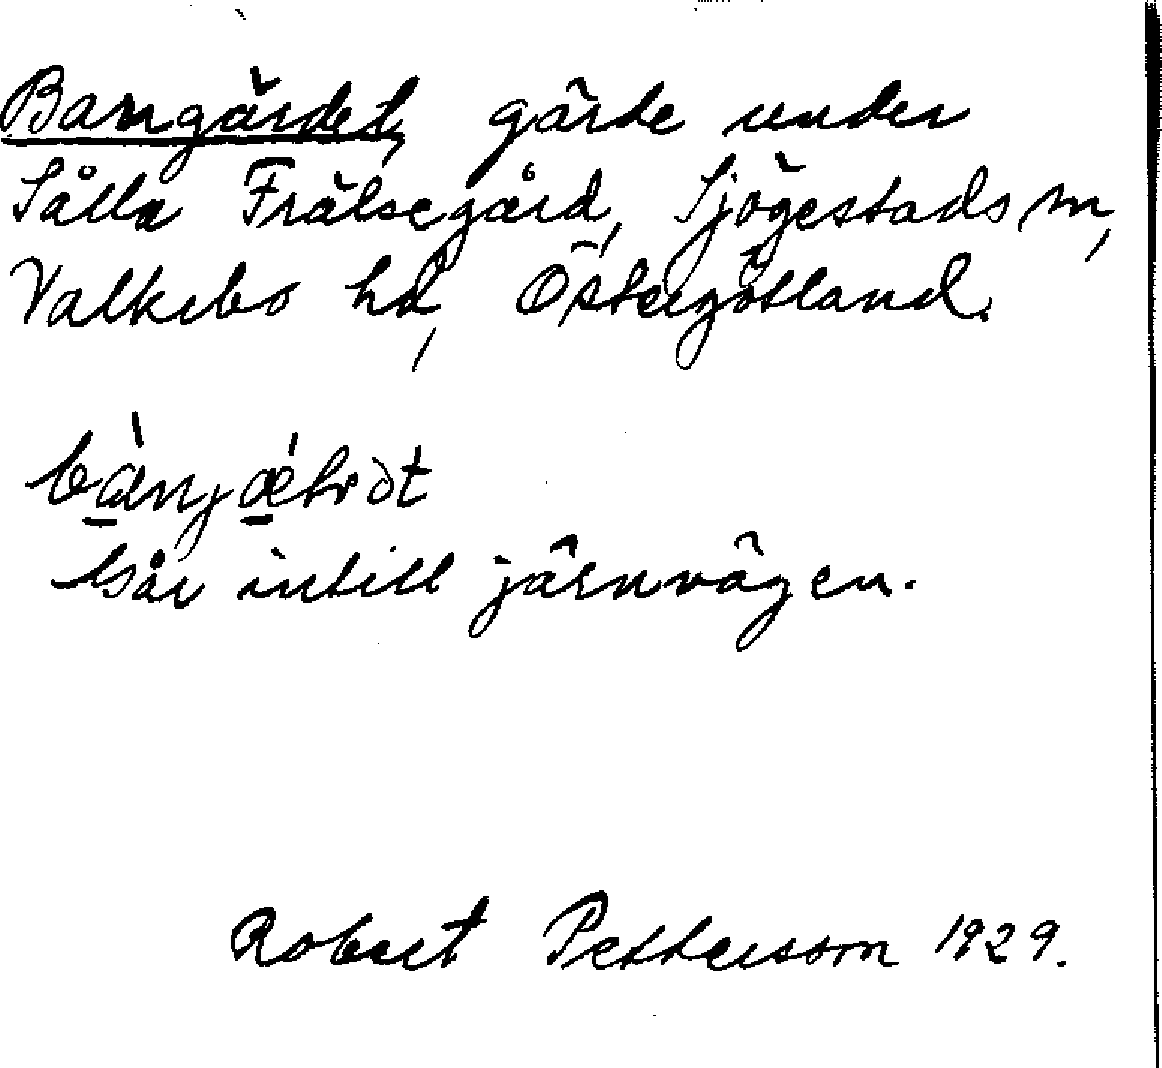 Bangärdet, gärde under
Sålla Frälsegård, Sjögestads sn,
Valkebo hd, Östergötland.
Går intill järnvägen.
Robert Pettersson 1929.